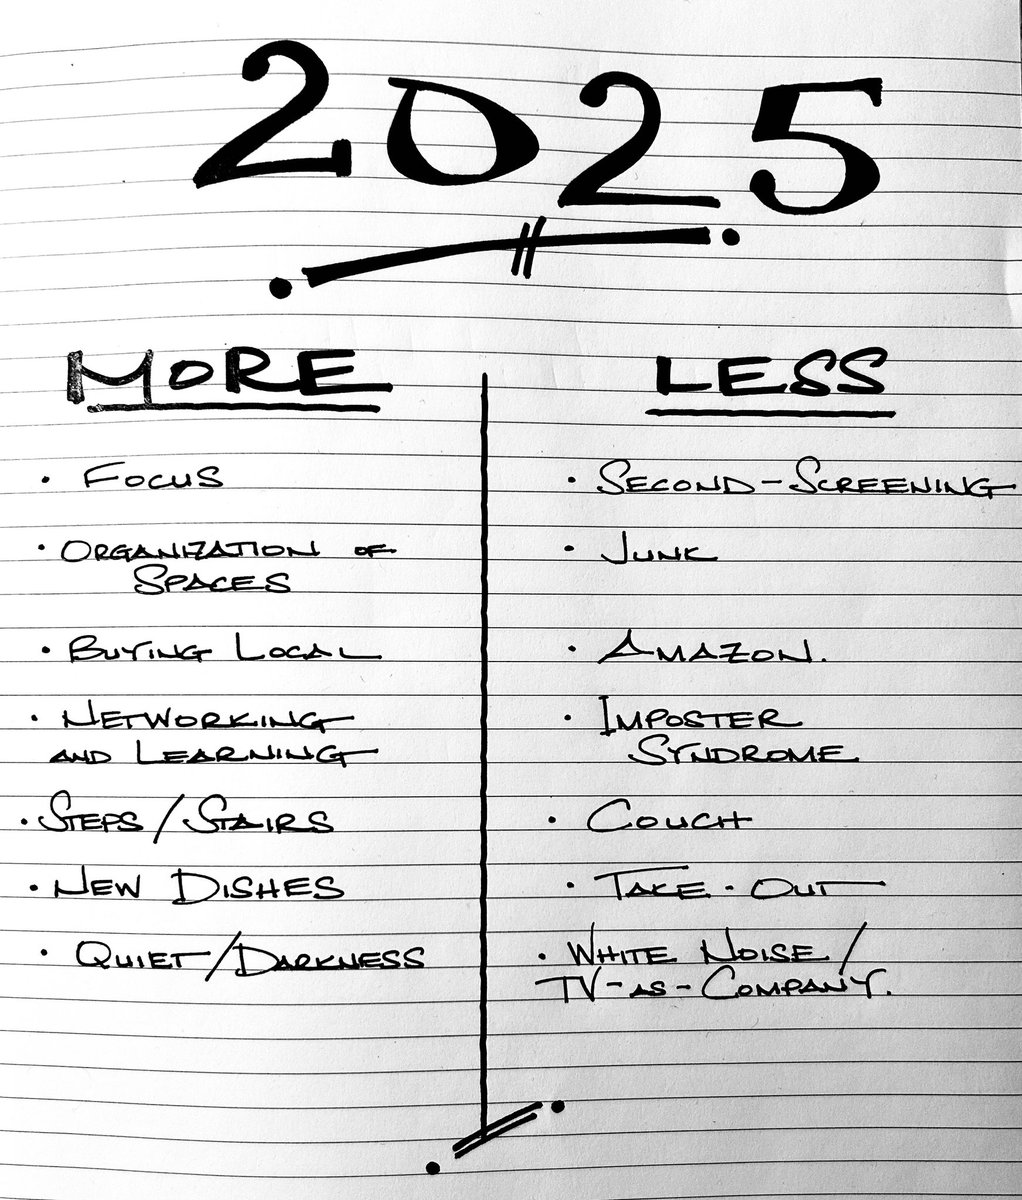 2025
MORE
LESS
• FOCUS
• SECOND-SCREENING
• ORGANIZATION OF
SPACES
• JUNK
• BUYING LOCAL
• AMAZON.
• NETWORKING
AND LEARNING
• IMPOSTER
SYNDROME.
• STEPS/STAIRS
• COUCH
• NEW DISHES
• TAKE-OUT
• QUIET/DARKNESS
• WHITE NOISE/
TV-AS-COMPANY.